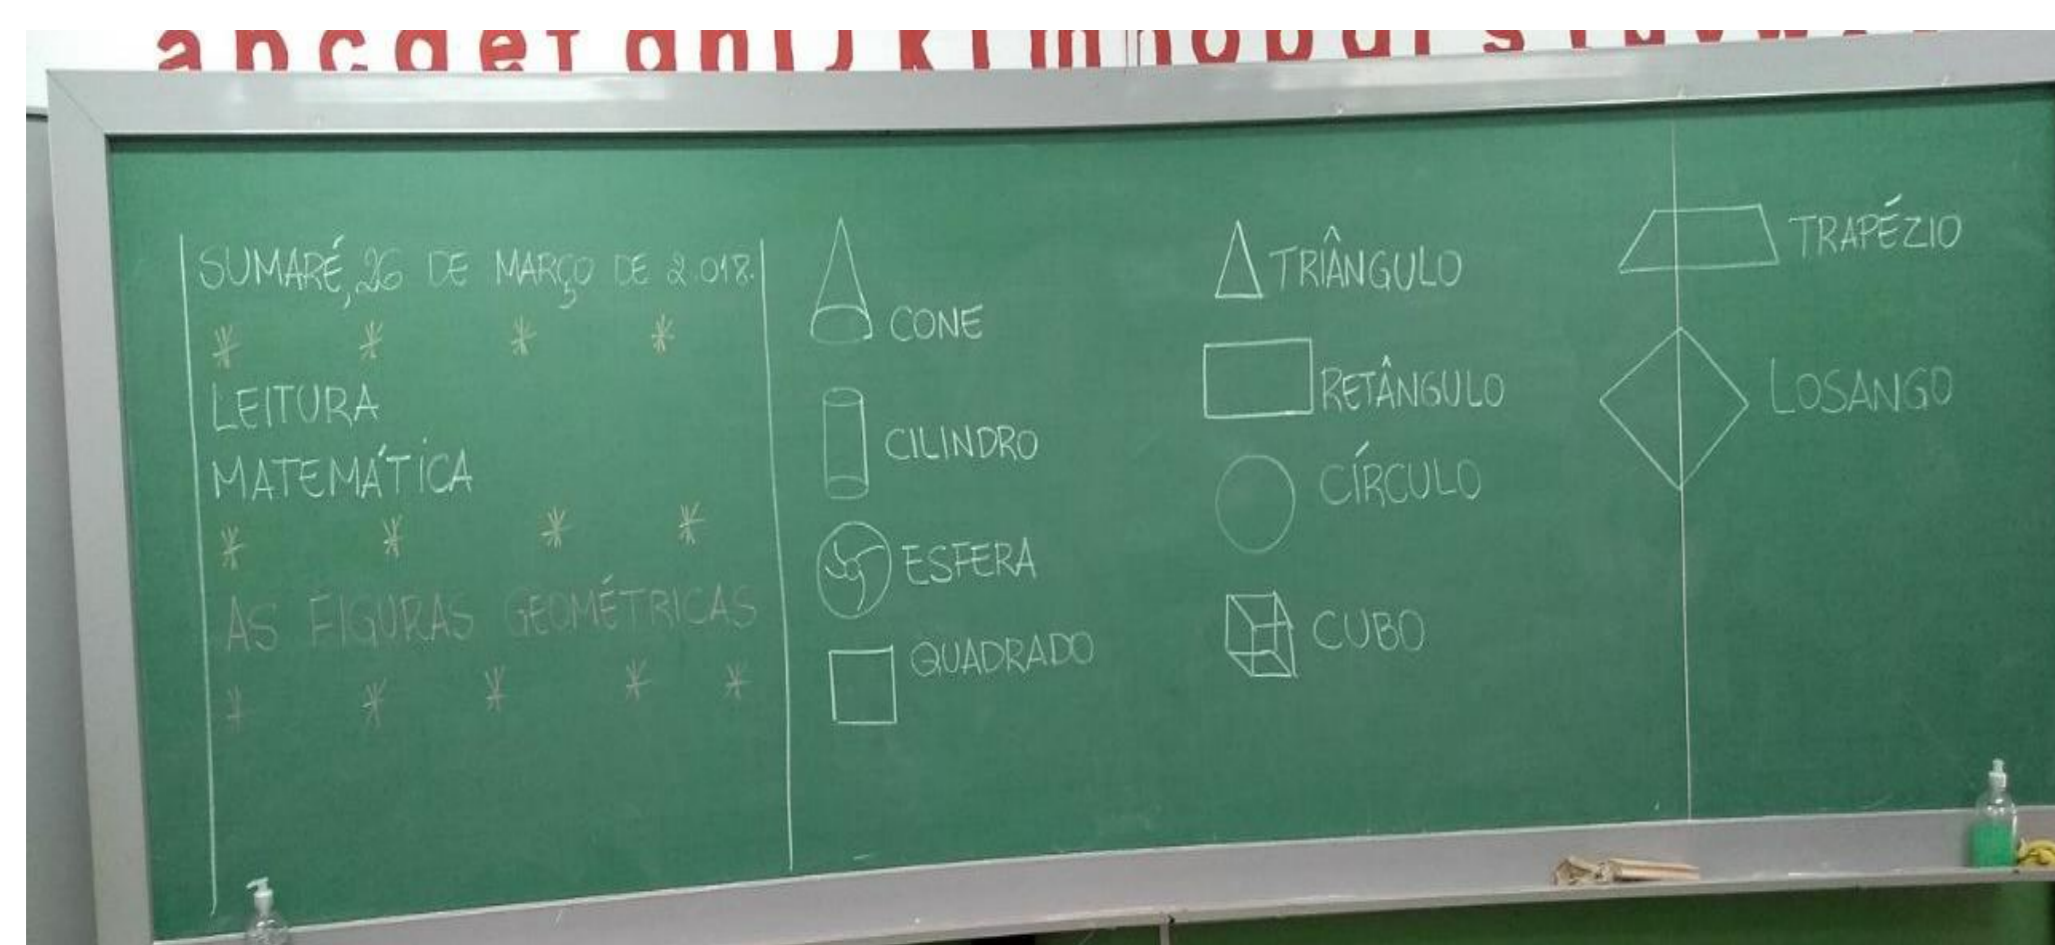 SUMARÉ, 26 DE MARÇO DE 2.018.
LEITURA
MATEMÁTICA
AS FIGURAS GEOMÉTRICAS
CONE
CILINDRO
ESFERA
QUADRADO
TRIÂNGULO
RETÂNGULO
CÍRCULO
CUBO
TRAPÉZIO
LOSANGO